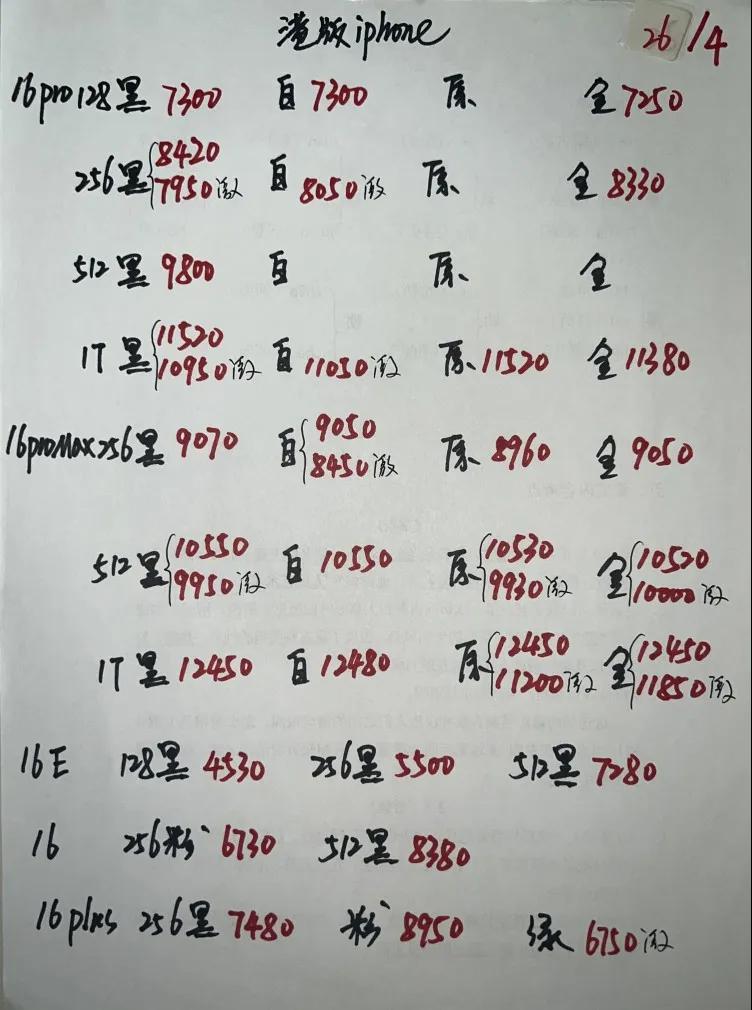 港版iphone 26/4
16pro128黑 7300 白 7300 原 金 7250
256黑 8420 7950激 白 8050激 原 金 8330
512黑 9800 白 原 金
1T黑 11520 10950激 白 11050激 原 11520 金 11380
16proMax256黑 9070 白 9050 8450激 原 8960 金 9050
512黑 10550 9950激 白 10550 原 10530 9930激 金 10520 10000激
1T黑 12450 白 12480 原 12450 11200激 金 12450 11850激
16E 128黑 4530 256黑 5500 512黑 7280
16 256粉 6730 512黑 8380
16plus 256黑 7480 粉 8950 绿 6750激